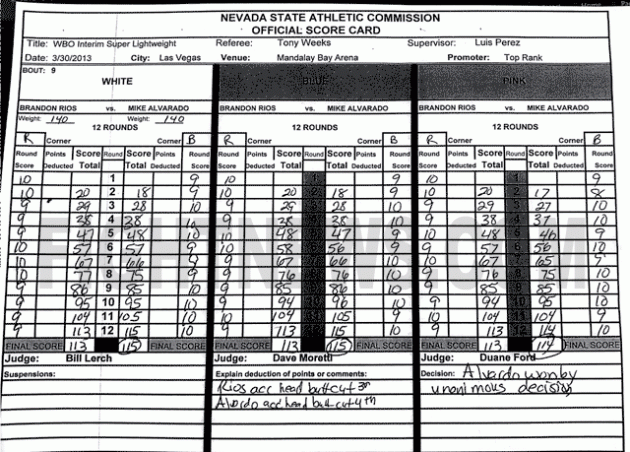 NEVADA STATE ATHLETIC COMMISSION
OFFICIAL SCORE CARD
Title: WBO Interim Super Lightweight Referee: Tony Weeks Supervisor: Luis Perez
Date: 3/30/2013 City: Las Vegas Venue: Mandalay Bay Arena Promoter: Top Rank
BOUT: 9
WHITE BLUE PINK
BRANDON RIOS vs. MIKE ALVARADO BRANDON RIOS vs. MIKE ALVARADO BRANDON RIOS vs. MIKE ALVARADO
Weight: 140 Weight: 140
12 ROUNDS 12 ROUNDS 12 ROUNDS
R Corner Corner B R Corner Corner B R Corner Corner B
Round Points Score Round Score Points Round Round Points Score Round Score Points Round Round Points Score Round Score Points Round
Score Deducted Total Total Deducted Score Score Deducted Total Total Deducted Score Score Deducted Total Total Deducted Score
10 1 9 10 9 10 1 9
10 20 2 18 9 10 20 2 18 9 10 20 2 17
9 29 3 28 10 9 29 28 10 9 29 3 27 10
9 38 4 28 10 9 38 38 10 9 38 4 37 10
9 47 5 48 10 10 48 47 9 10 48 5 46 9
10 57 6 57 9 10 58 56 9 9 57 6 56 10
10 67 7 66 9 9 67 66 10 10 67 7 65 9
10 77 8 75 9 9 76 76 10 9 76 8 75 10
9 86 9 85 10 9 85 86 10 9 85 9 85 10
9 95 10 95 10 9 94 96 10 10 95 10 94 9
9 104 11 105 10 10 104 105 9 9 104 11 104 10
9 113 12 115 10 9 113 115 10 9 113 12 114 10
FINAL SCORE 113 115 FINAL SCORE FINAL SCORE 113 115 FINAL SCORE FINAL SCORE 113 114 FINAL SCORE
Judge: Bill Lerch Judge: Dave Moretti Judge: Duane Ford
Suspensions: Explain deduction of points or comments: Decision: Alvardo won by
Rios acc head butt cut 3r unanimous decision
Alvardo acc head butt cut 4th
FIGHTNEWS.COM